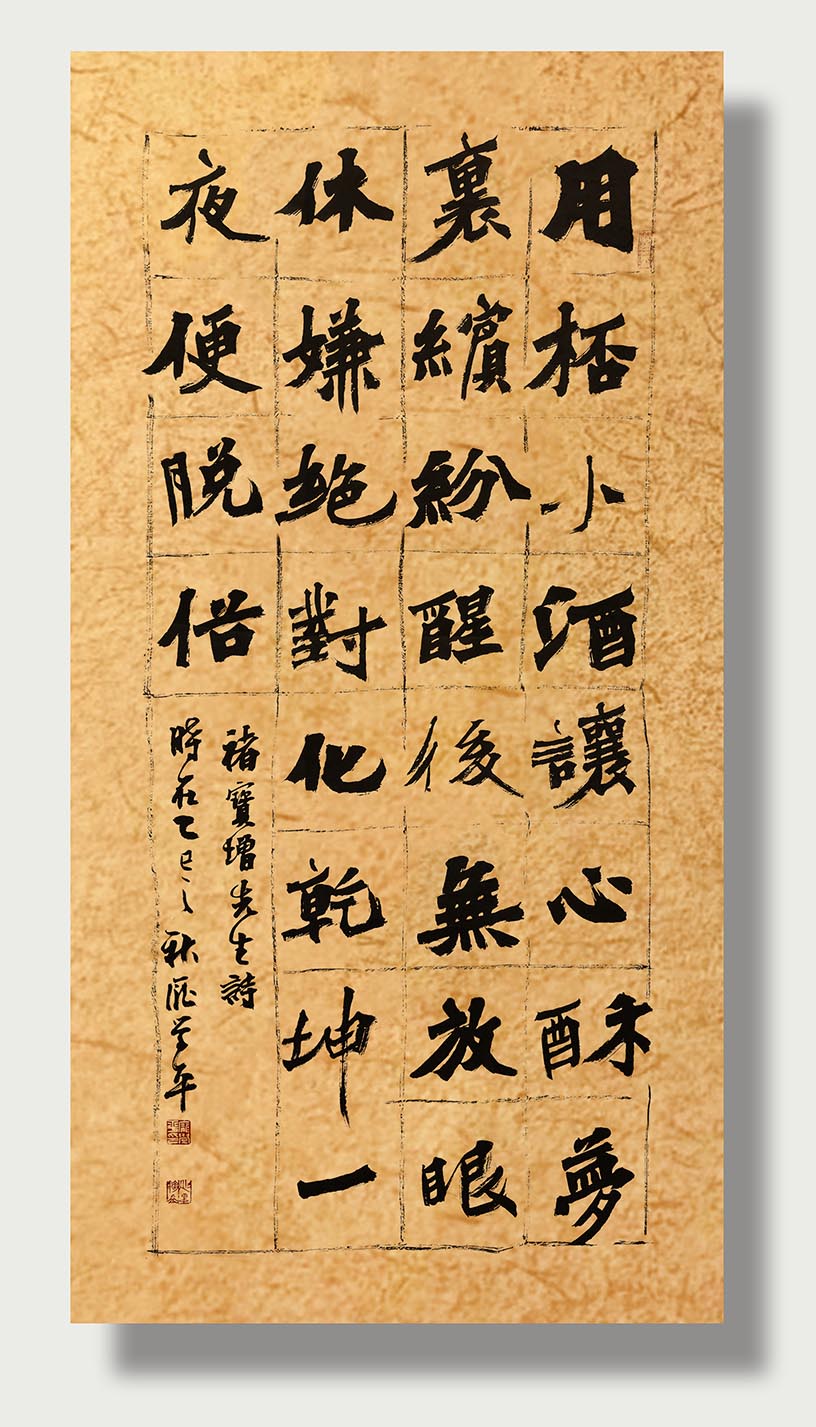 用桮小酒讓心酥夢
裏繽紛醒後無放眼
休嫌絶對化乾坤一
夜便脱俗
褚寶增先生詩
時在乙巳之秋